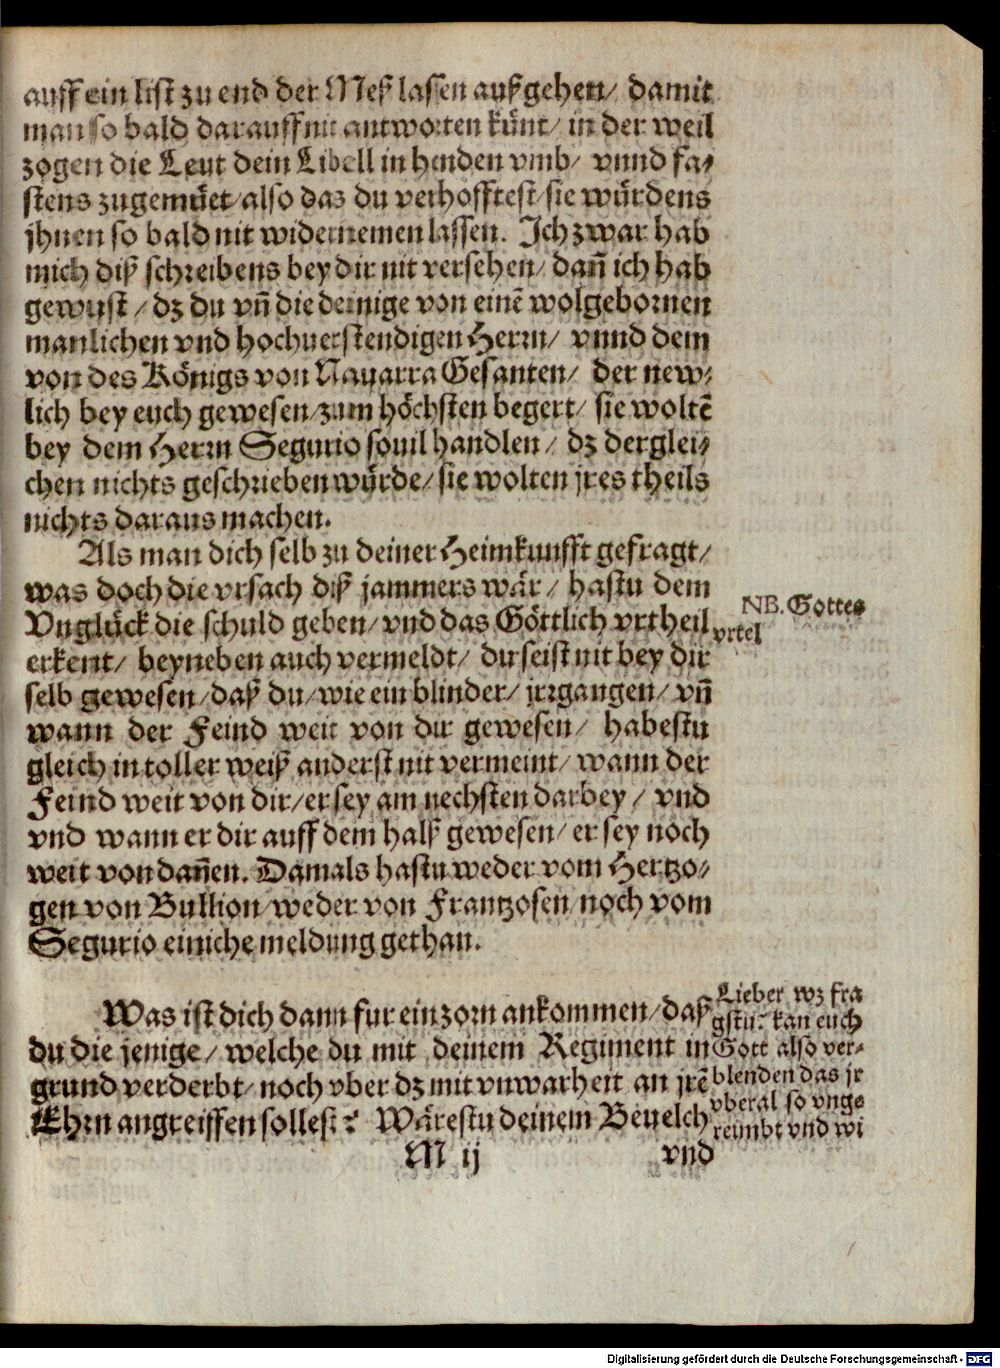 auff ein list zu end der Meß lassen außgehen/ damit
man so bald darauff nit antworten künt/ in der weil
zogen die Leut dein Libell in henden vmb/ vnnd fa⸗
stens zugemüet/ also das du verhofftest/ sie würdens
jhnen so bald nit widernemen lassen. Ich zwar hab
mich diß schreibens bey dir nit versehen/ dañ ich hab
gewust/ dz du vñ die deinige von einē wolgebornen
manlichen vnd hochuerstendigen Herrn/ vnnd dem
von des Königs von Nauarra Gesanten/ der new⸗
lich bey euch gewesen/ zum höchsten begert/ sie woltē
bey dem Herrn Segurio souil handlen/ dz derglei⸗
chen nichts geschrieben würde/ sie wolten jres theils
nichts daraus machen.
Als man dich selb zu deiner Heimkunfft gefragt/
was doch die vrsach diß jammers wär/ hastu dem
Vnglück die schuld geben/ vnd das Göttlich vrtheil
NB. Gottes
vrtel
erkent/ beyneben auch vermeldt/ du seist nit bey dir
selb gewesen/ daß du/ wie ein blinder/ jrrgangen/ vñ
wann der Feind weit von dir gewesen/ habestu
gleich in toller weiß anderst nit vermeint/ wann der
Feind weit von dir/ er sey am nechsten darbey/ vnd
vnd wann er dir auff dem halß gewesen/ er sey noch
weit von dañen. Damals hastu weder vom Hertzo⸗
gen von Bullion/ weder von Frantzosen/ noch vom
Segurio einiche meldung gethan.
Was ist dich dann fur ein zorn ankommen/ daß
du die jenige/ welche du mit deinem Regiment in
grund verderbt/ noch vber dz mit vnwarheit an jrē
Ehrn angreiffen sollest? Wärestu deinem Beuelch
Lieber wz fra
gstu? kan euch
Gott also ver⸗
blenden das jr
vberal so vnge
reimbt vnd wi
M ij
vnd
Digitalisierung gefördert durch die Deutsche Forschungsgemeinschaft - DFG